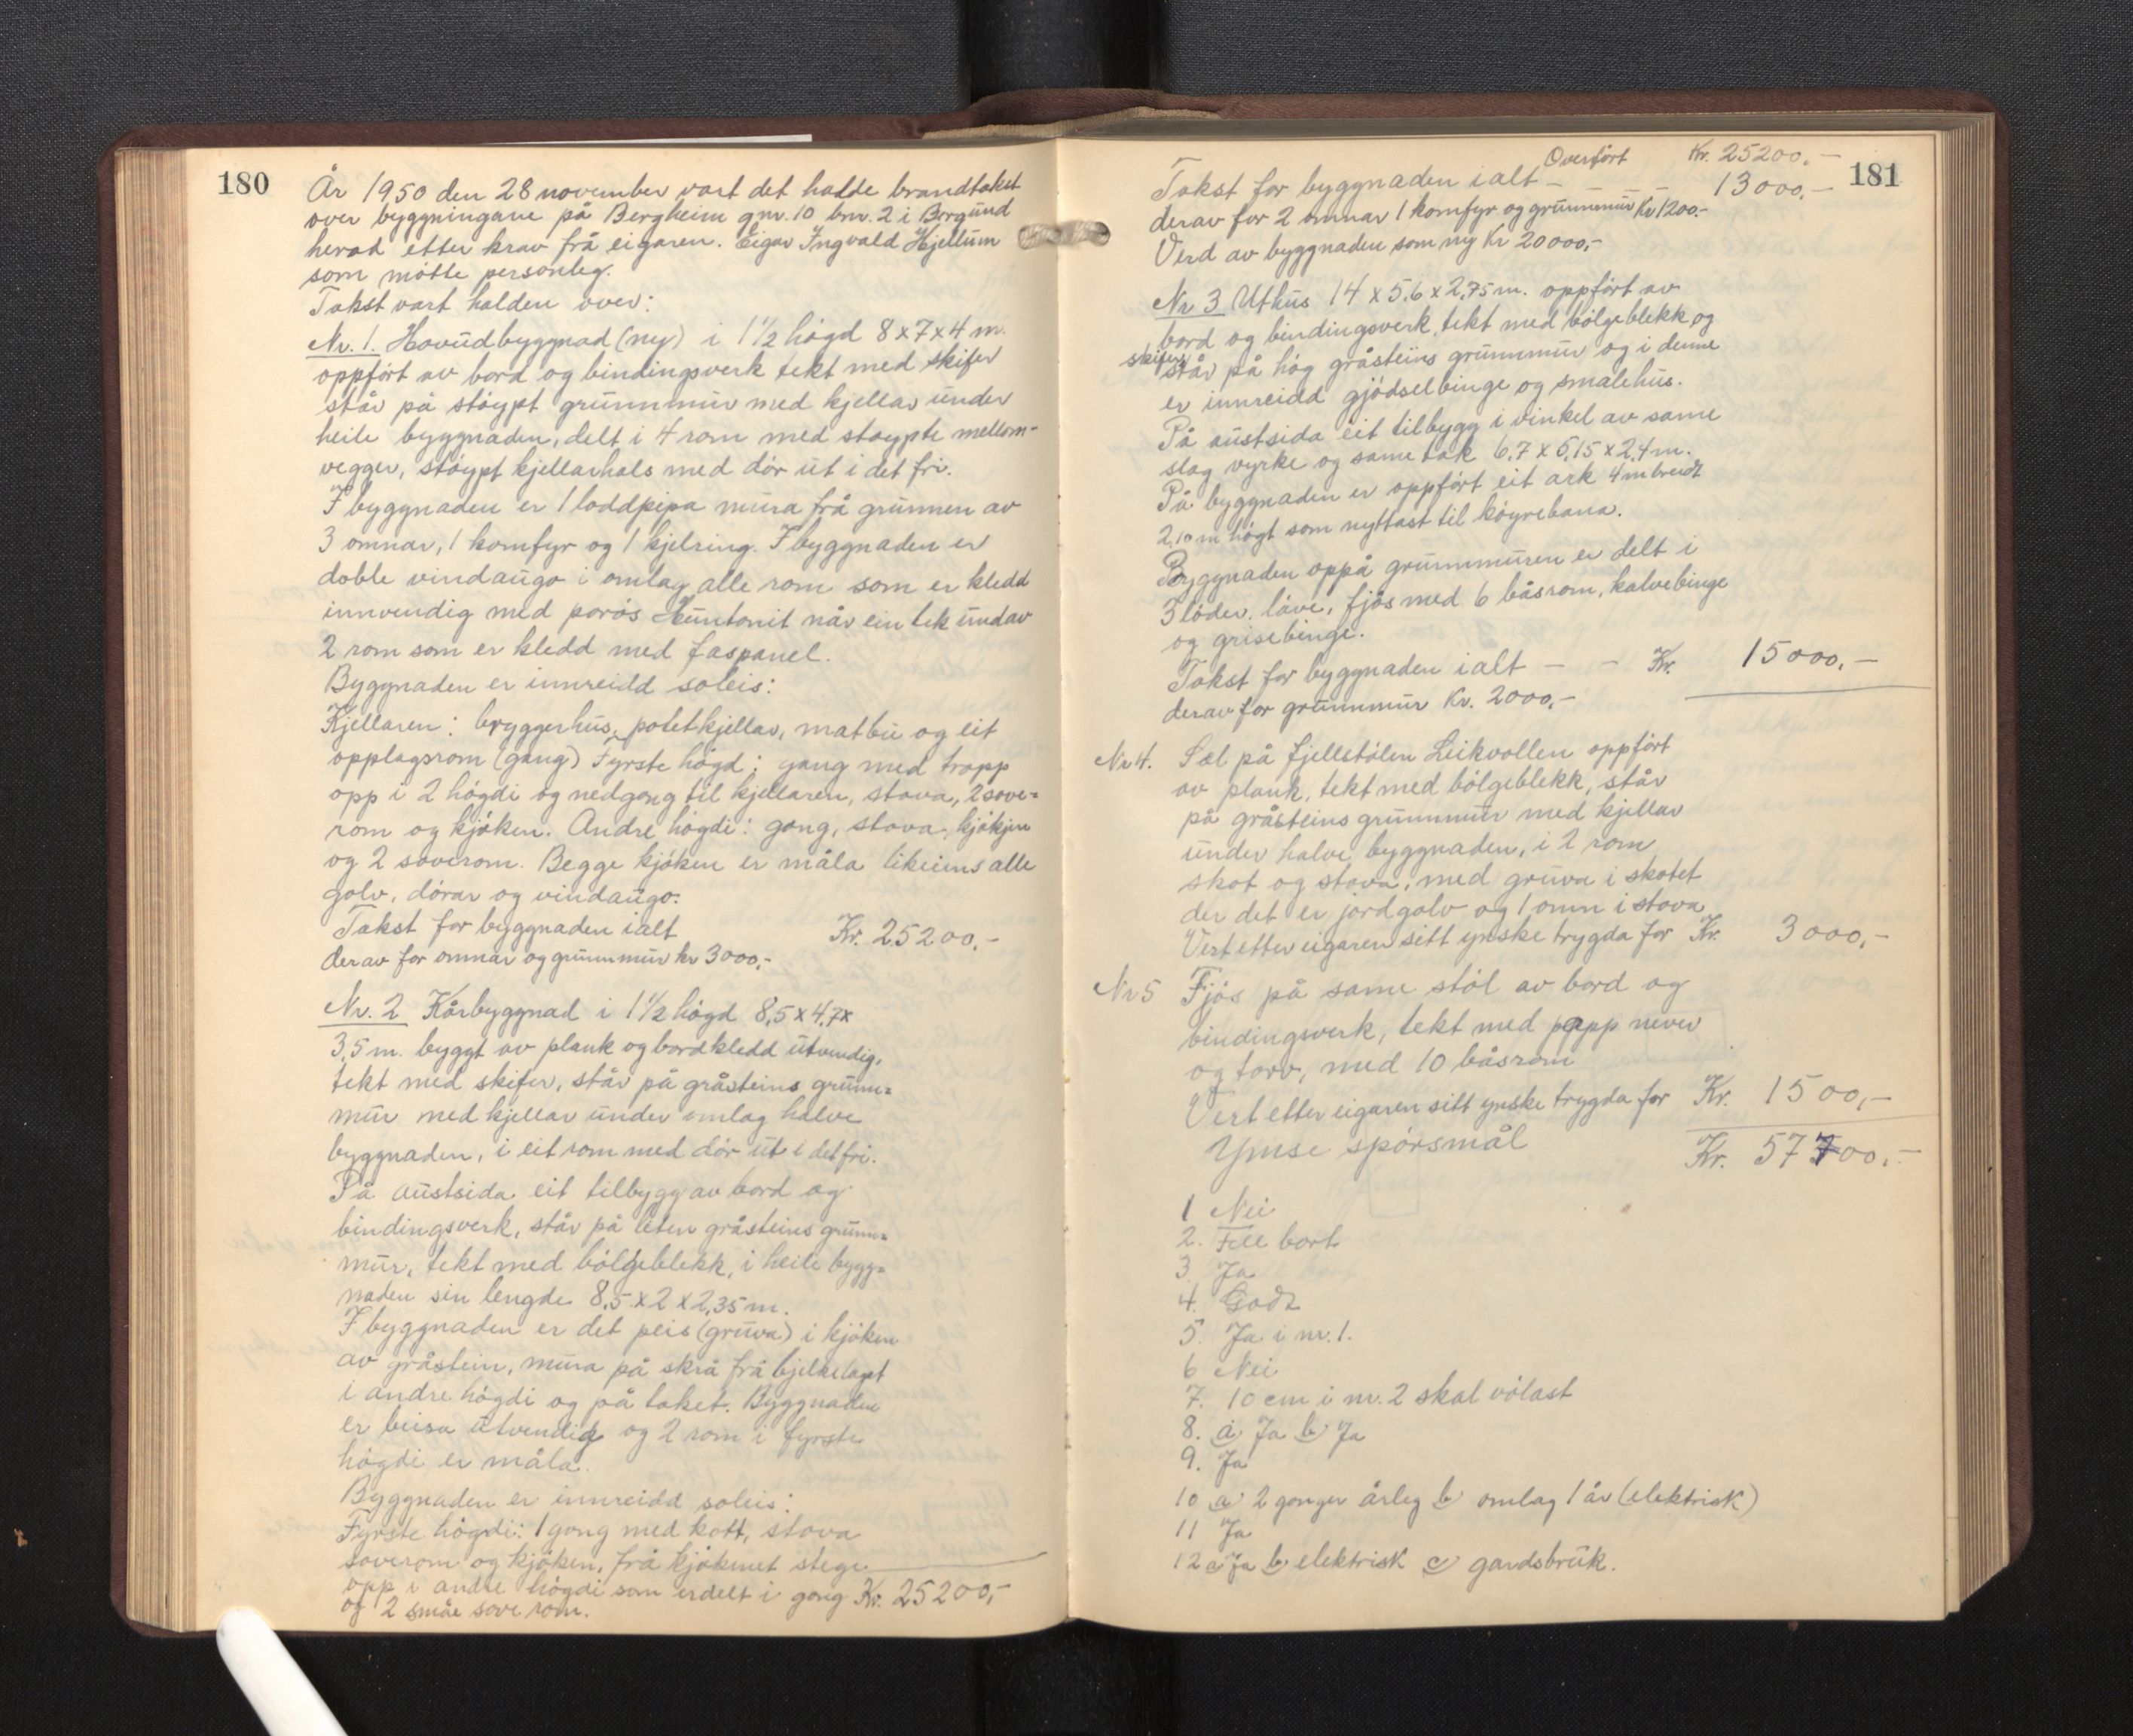 180
År 1950 den 28 november vart det halde brandtakst
over byggningane på Bergheim gnr. 10 bnr. 2 i Borgund
herad etter krav frå eigaren. Eigar Ingvald Hjellum
som møtte personleg.
Takst vart halden over:
Nr. 1. Hovudbyggnad (ny) i 1 1/2 høgd 8 x 7 x 4 m.
oppført av bord og bindingsverk tekt med skifer
står på støypt grunnmur med kjellar under
heile byggnaden, delt i 4 rom med støypte mellom-
vegger, støypt kjellarhals med dør ut i det fri.
I byggnaden er 1 loddpipa mura frå grunnen av
3 omnar, 1 komfyr og 1 kjelring. I byggnaden er
doble vindaugo i omlag alle rom som er kledd
innvendig med porøs Huntonit når ein tek undav
2 rom som er kledd med faspanel.
Byggnaden er innreidd soleis:
Kjellaren: bryggerhus, potetkjellar, matbu og eit
opplagsrom (gang) Fyrste høgd: gang med trapp
opp i 2 høgdi og nedgang til kjellaren, stova, 2 sove=
rom og kjøken. Andre høgdi: gang, stova, kjøkjen
og 2 soverom. Begge kjøken er måla likeeins alle
golv, dørar og vindaugo.
Takst for byggnaden ialt Kr. 25200,-
derav for omnar og grunnmur kr 3000,-
Nr. 2 Kårbyggnad i 1 1/2 høgd 8,5 x 4,7 x
3,5 m. byggt av plank og bordkledd utvendig,
tekt med skifer, står på gråsteins grunn=
mur med kjellar under omlag halve
byggnaden, i eit rom med dør ut i det fri.
På austsida eit tilbygg av bord og
bindingsverk, står på liten gråsteins grunn=
mur, tekt med bølgeblekk, i heile bygg=
naden sin lengde 8,5 x 2 x 2,35 m.
I byggnaden er det peis (gruva) i kjøken
av gråstein, mura på skrå frå bjelkelaget
i andre høgdi og på taket. Byggnaden
er beisa utvendig og 2 rom i fyrste
høgdi er måla.
Byggnaden er innreidd soleis:
Fyrste høgdi: 1 gong med kott, stova
soverom og kjøken, frå kjøkenet stege
opp i andre høgdi som er delt i gong Kr. 25200,-
og 2 småe sove rom.
181
Overført Kr. 25200,-
Takst for byggnaden ialt - - - - 13000,-
derav for 2 omnar 1 komfyr og grunnmur Kr 1200.-
Verd av byggnaden som ny Kr 20000,-
Nr 3 Uthus 14 x 5,6 x 2,75 m. oppført av
bord og bindingsverk, tekt med bølgeblekk og
skifer, står på høg gråsteins grunnmur og i denne
er innreidd gjødselbinge og smalehus.
På austsida eit tilbygg i vinkel av same
slag vyrke og same tak 6,7 x 6,15 x 2,4 m.
På byggnaden er oppført eit ark 4 m breidt
2,10 m høgt som nyttast til køyrebana.
Byggnaden oppå grunnmuren er delt i
3 løder, låve, fjøs med 6 båsrom, kalvebinge
og grisebinge.
Takst for byggnaden ialt - - Kr. 15000,-
derav for grunnmur Kr. 2000,-
Nr 4. Sel på fjellstølen Leikvollen oppført
av plank, tekt med bølgeblekk, står
på gråsteins grunnmur med kjellar
under halve byggnaden, i 2 rom
skot og stova, med gruva i skotet
der det er jordgolv og 1 omn i stova
Vert etter eigaren sitt ynske trygda for Kr. 3000,-
Nr 5 Fjøs på same støl av bord og
bindingsverk, tekt med papp never
og torv, med 10 båsrom
Vert etter eigaren sitt ynske trygda for Kr. 1500,-
Ymse spørsmål Kr. 57700,-
1 Nei
2. Fell bort
3. Ja
4. Godt
5. Ja i nr. 1.
6 Nei
7. 10 cm i nr. 2 skal vølast
8. a) Ja b) Ja
9. Ja
10 a) 2 gonger årleg b) omlag 1 år (elektrisk)
11 Ja
12 a) Ja b) elektrisk c) gardsbruk.